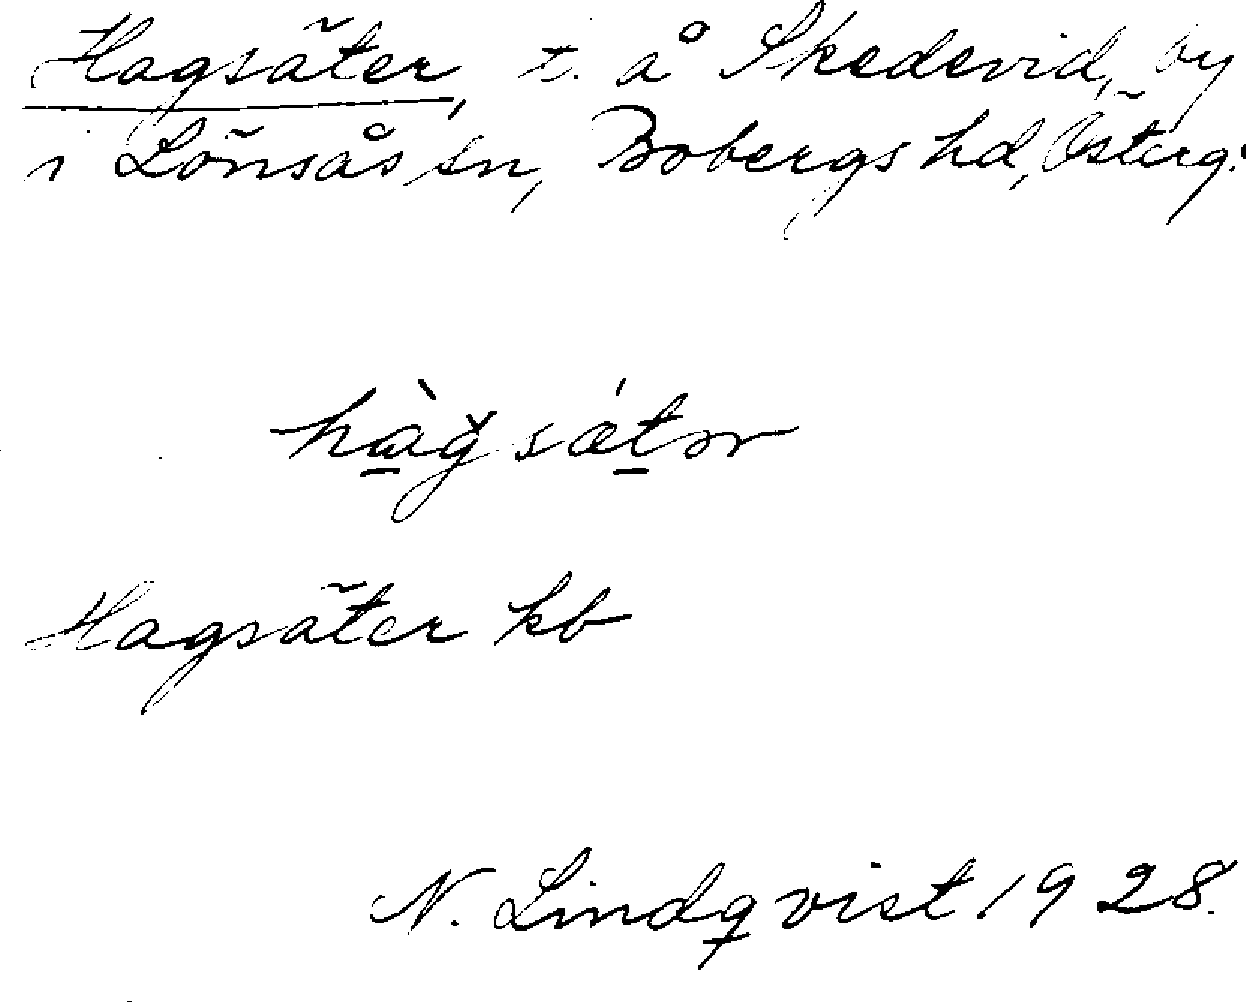 Hagsäter, t. å Skedevid, by
i Lönsås sn, Bobergs hd, Österg.
hàǧsǽtər
Hagsäter kb
N. Lindqvist 1928.